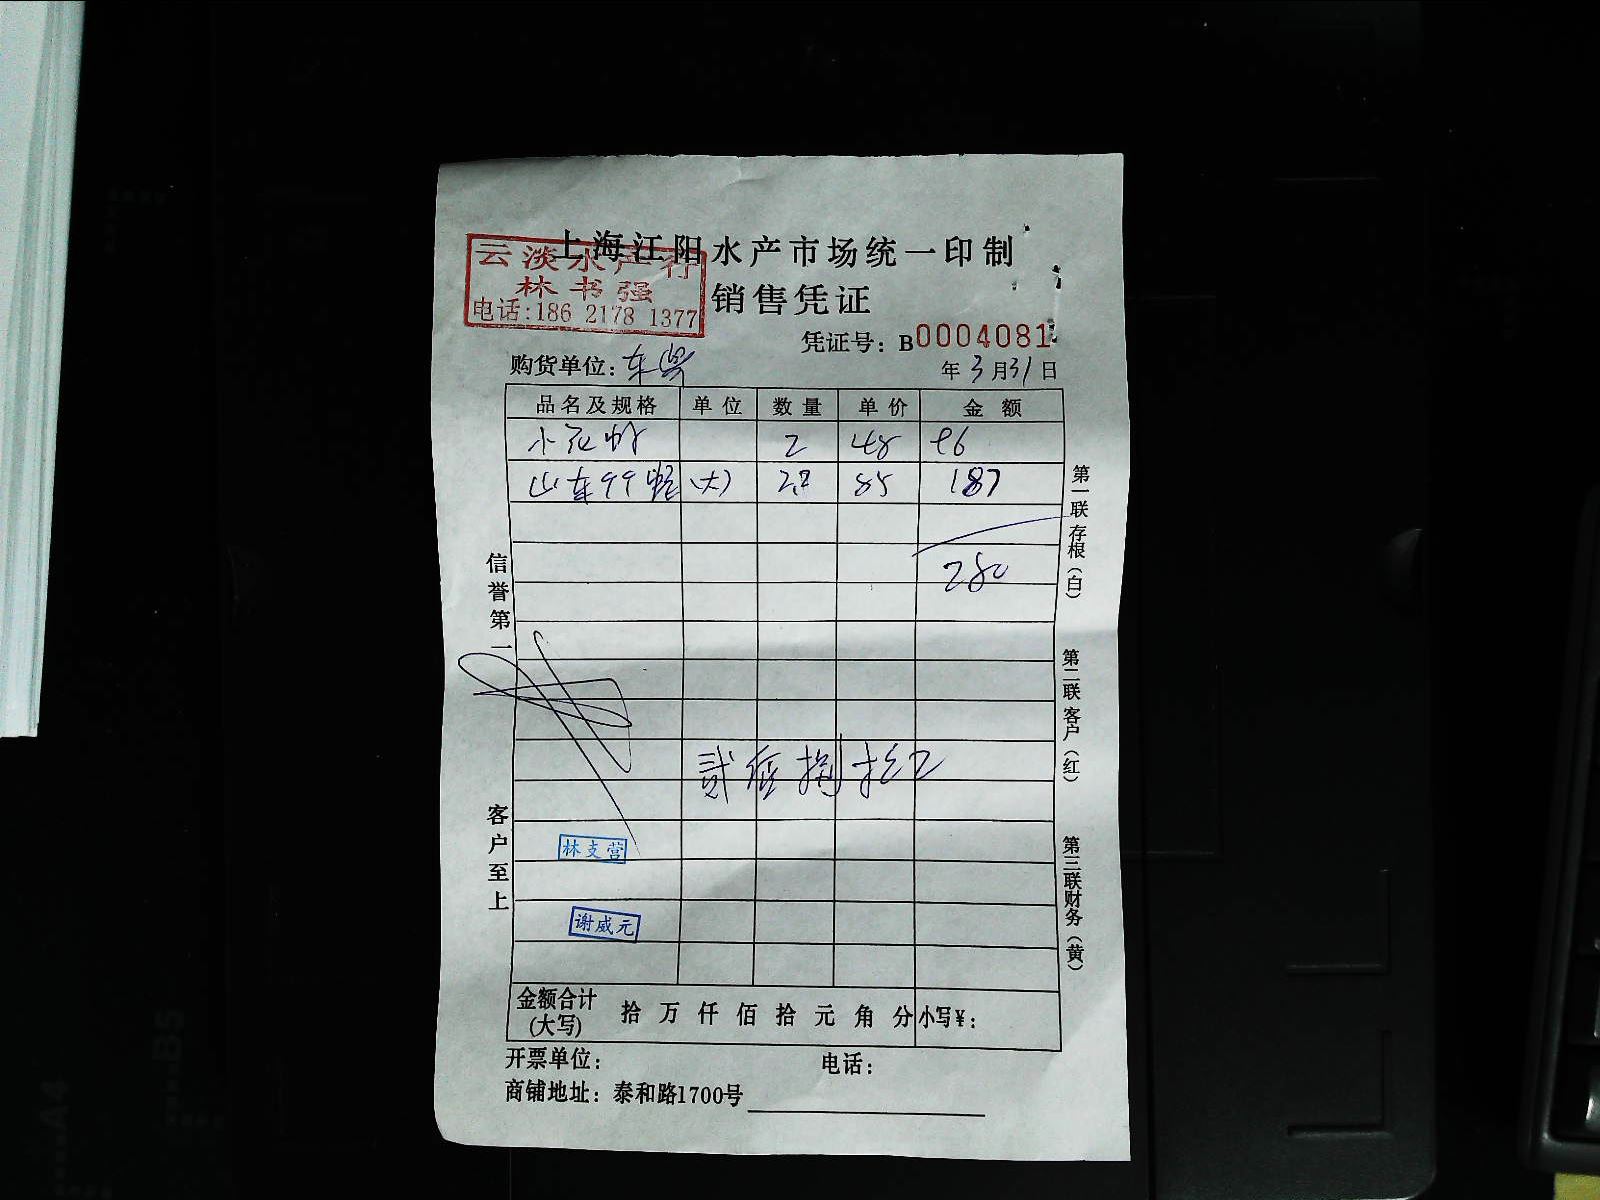 上海江阳水产市场统一印制
云淡水产行
林书强
电话:186 2178 1377
销售凭证
凭证号: B0004081
购货单位:
年 3 月 31 日
品名及规格 单位 数量 单价 金额
小花 2 48 96
山东 (大) 2.2 85 187
280
贰 捌拾
信誉第一
客户至上
林支营
谢威元
第一联 存根(白)
第二联 客户(红)
第三联 财务(黄)
金额合计(大写) 拾 万 仟 佰 拾 元 角 分 小写¥:
开票单位: 电话:
商铺地址: 泰和路1700号